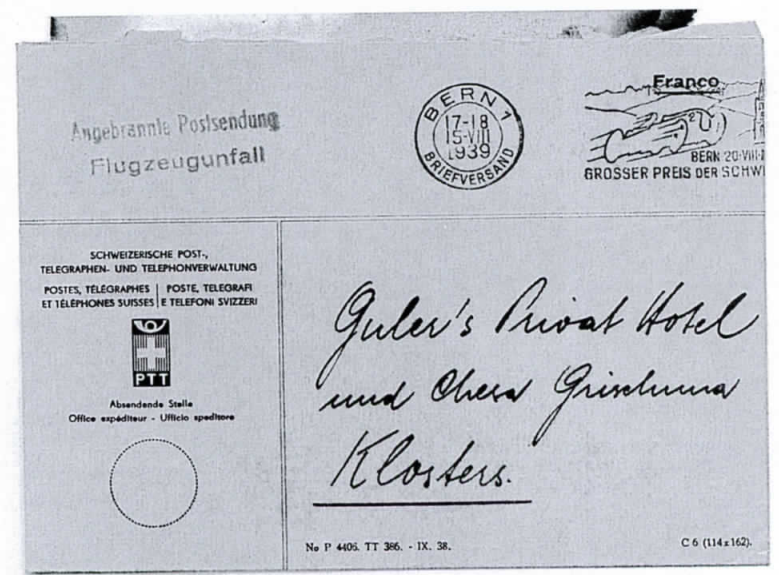 Angebrannte Postsendung
Flugzeugunfall
BERN 1
17-18
15·VIII
1939
BRIEFVERSAND
Franco
BERN 20·VIII·
GROSSER PREIS DER SCHWI
SCHWEIZERISCHE POST-,
TELEGRAPHEN- UND TELEPHONVERWALTUNG
POSTES, TÉLÉGRAPHES | POSTE, TELEGRAFI
ET TÉLÉPHONES SUISSES | E TELEFONI SVIZZERI
PTT
Absendende Stelle
Office expéditeur - Ufficio speditore
Guler's Privat Hotel
und Chesa Grischuna
Klosters.
No P 4406. TT 386. - IX. 38.
C 6 (114x162).